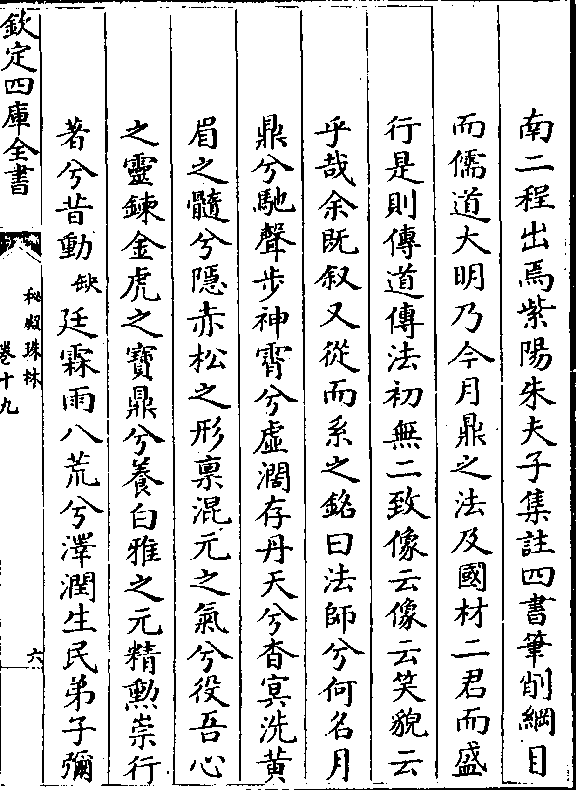 南二程出焉紫陽朱夫子集註四書筆削綱目
而儒道大明乃今月鼎之法及國材二君而盛
行是則傳道傳法初無二致像云像云笑貌云
乎哉余既叙又從而系之銘曰法師兮何名月
鼎兮馳聲步神霄兮虛濶存丹天兮杳冥洗黄
眉之髓兮隱赤松之形禀混元之氣兮役吾心
之靈鍊金虎之寶鼎兮養白雅之元精勲崇行
著兮昔動缺廷霖雨八荒兮澤潤生民弟子彌
欽定四庫全書
秘殿珠林
卷十九
六